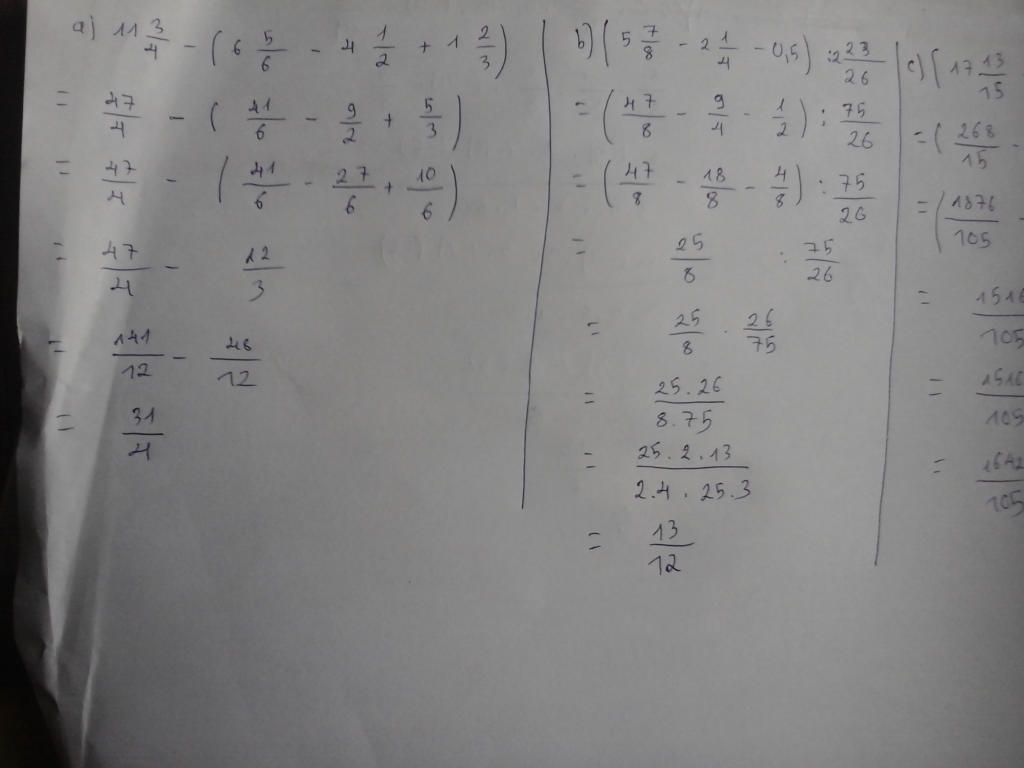 a) 11 3/4 - (6 5/6 - 4 1/2 + 1 2/3)
= 47/4 - (41/6 - 9/2 + 5/3)
= 47/4 - (41/6 - 27/6 + 10/6)
= 47/4 - 12/3
= 141/12 - 48/12
= 31/4
b) (5 7/8 - 2 1/4 - 0,5) : 2 23/26
= (47/8 - 9/4 - 1/2) : 75/26
= (47/8 - 18/8 - 4/8) : 75/26
= 25/8 : 75/26
= 25/8 . 26/75
= 25.26/8.75
= 25.2.13/2.4.25.3
= 13/12
c) (17 13/15
= (268/15 -
= (1876/105 -
= 1516/105
= 1516/105
= /105